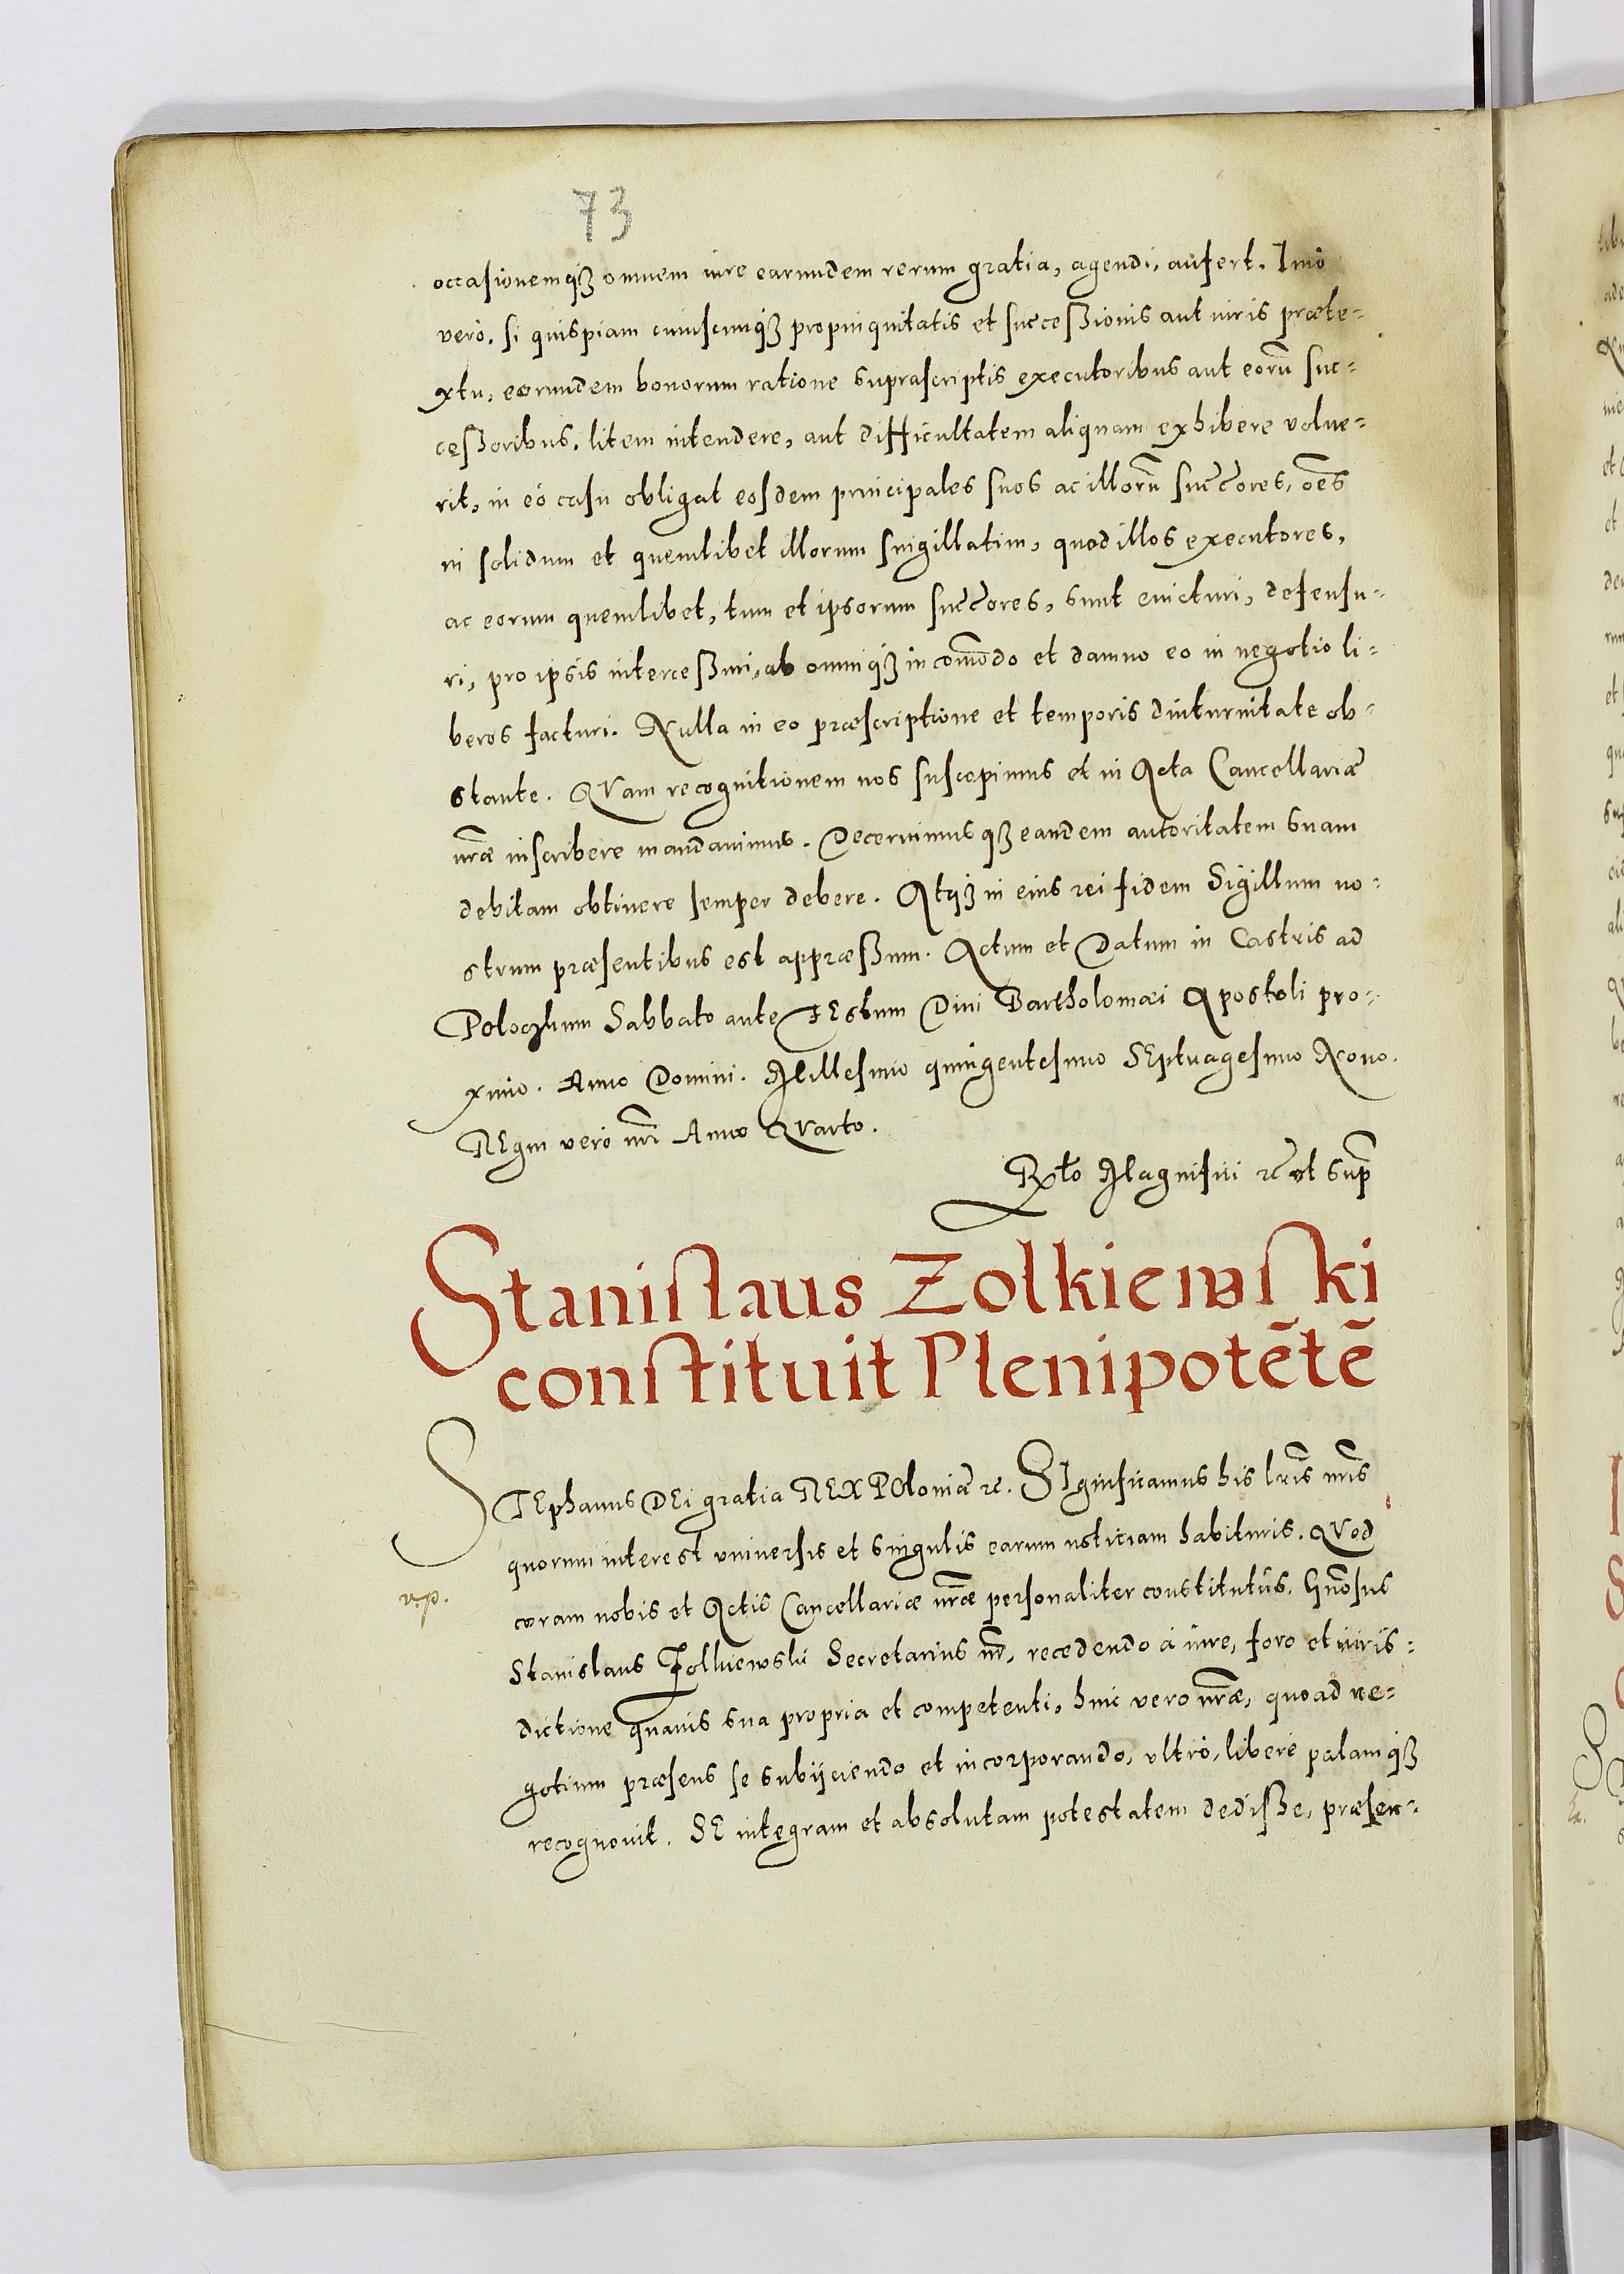 73
occasionemq́ꝫ omnem iure earundem rerum gratia, agendi, aufert. Imò
verò, si quispiam cuiuscunq́ꝫ propinquitatis et successionis aut iuris præte-
xtu, eorundem bonorum ratione suprascriptis executoribus aut eorũ suc-
cessoribus, litem intendere, aut difficultatem aliquam exhibere volue-
rit, in eò casu obligat eosdem principales suos ac illorũ succ̃ores, oẽs
in solidum et quemlibet illorum singillatim, quod illos executores,
ac eorum quemlibet, tum et ipsorum succ̃ores, sunt evicturi, defensu-
ri, pro ipsis intercessuri, ab omniq́ꝫ incom̃odo et damno eo in negotio li-
beros facturi. Nulla in eo præscriptione et temporis diuturnitate ob-
stante. QVam recognitionem nos suscepimus et in Acta Cancellariæ
nr̃æ inscribere mandavimus. Decernimusq́ꝫ eandem autoritatem suam
debitam obtinere semper debere. Atq́ꝫ in eius rei fidem Sigillum no-
strum præsentibus est appræssum. Actum et Datum in Castris ad
Poloczkum Sabbato ante FEstum Divi Bartholomæi Apostoli pro-
ximo. Anno Domini. Millesimo quingentesimo SEptuagesimo Nono.
REgni verò nr̃i Anno QVarto.
Rx̃to Magnifici ꝛc̃ vt sup̃
Stanislaus Zolkiewski
constituit Plenipotẽtẽ
STEphanus DEi gratia REX POloniæ ꝛc. SIgnificamus his lr̃is nr̃is
quorum interest vniversis et singulis earum noticiam habituris. QVod
coram nobis et Actis Cancellariæ nr̃æ personaliter constitutus, Gñosus
Stanislaus Zolkiewski Secretarius nr̃, recedendo à iure, foro et iuris-
dictione quavis sua propria et competenti, huic vero nr̃æ, quoad ne-
gotium præsens se subijciendo et incorporando, vltrò, liberè palamq́ꝫ
recognovit. SE integram et absolutam potestatem dedisse, præsen-